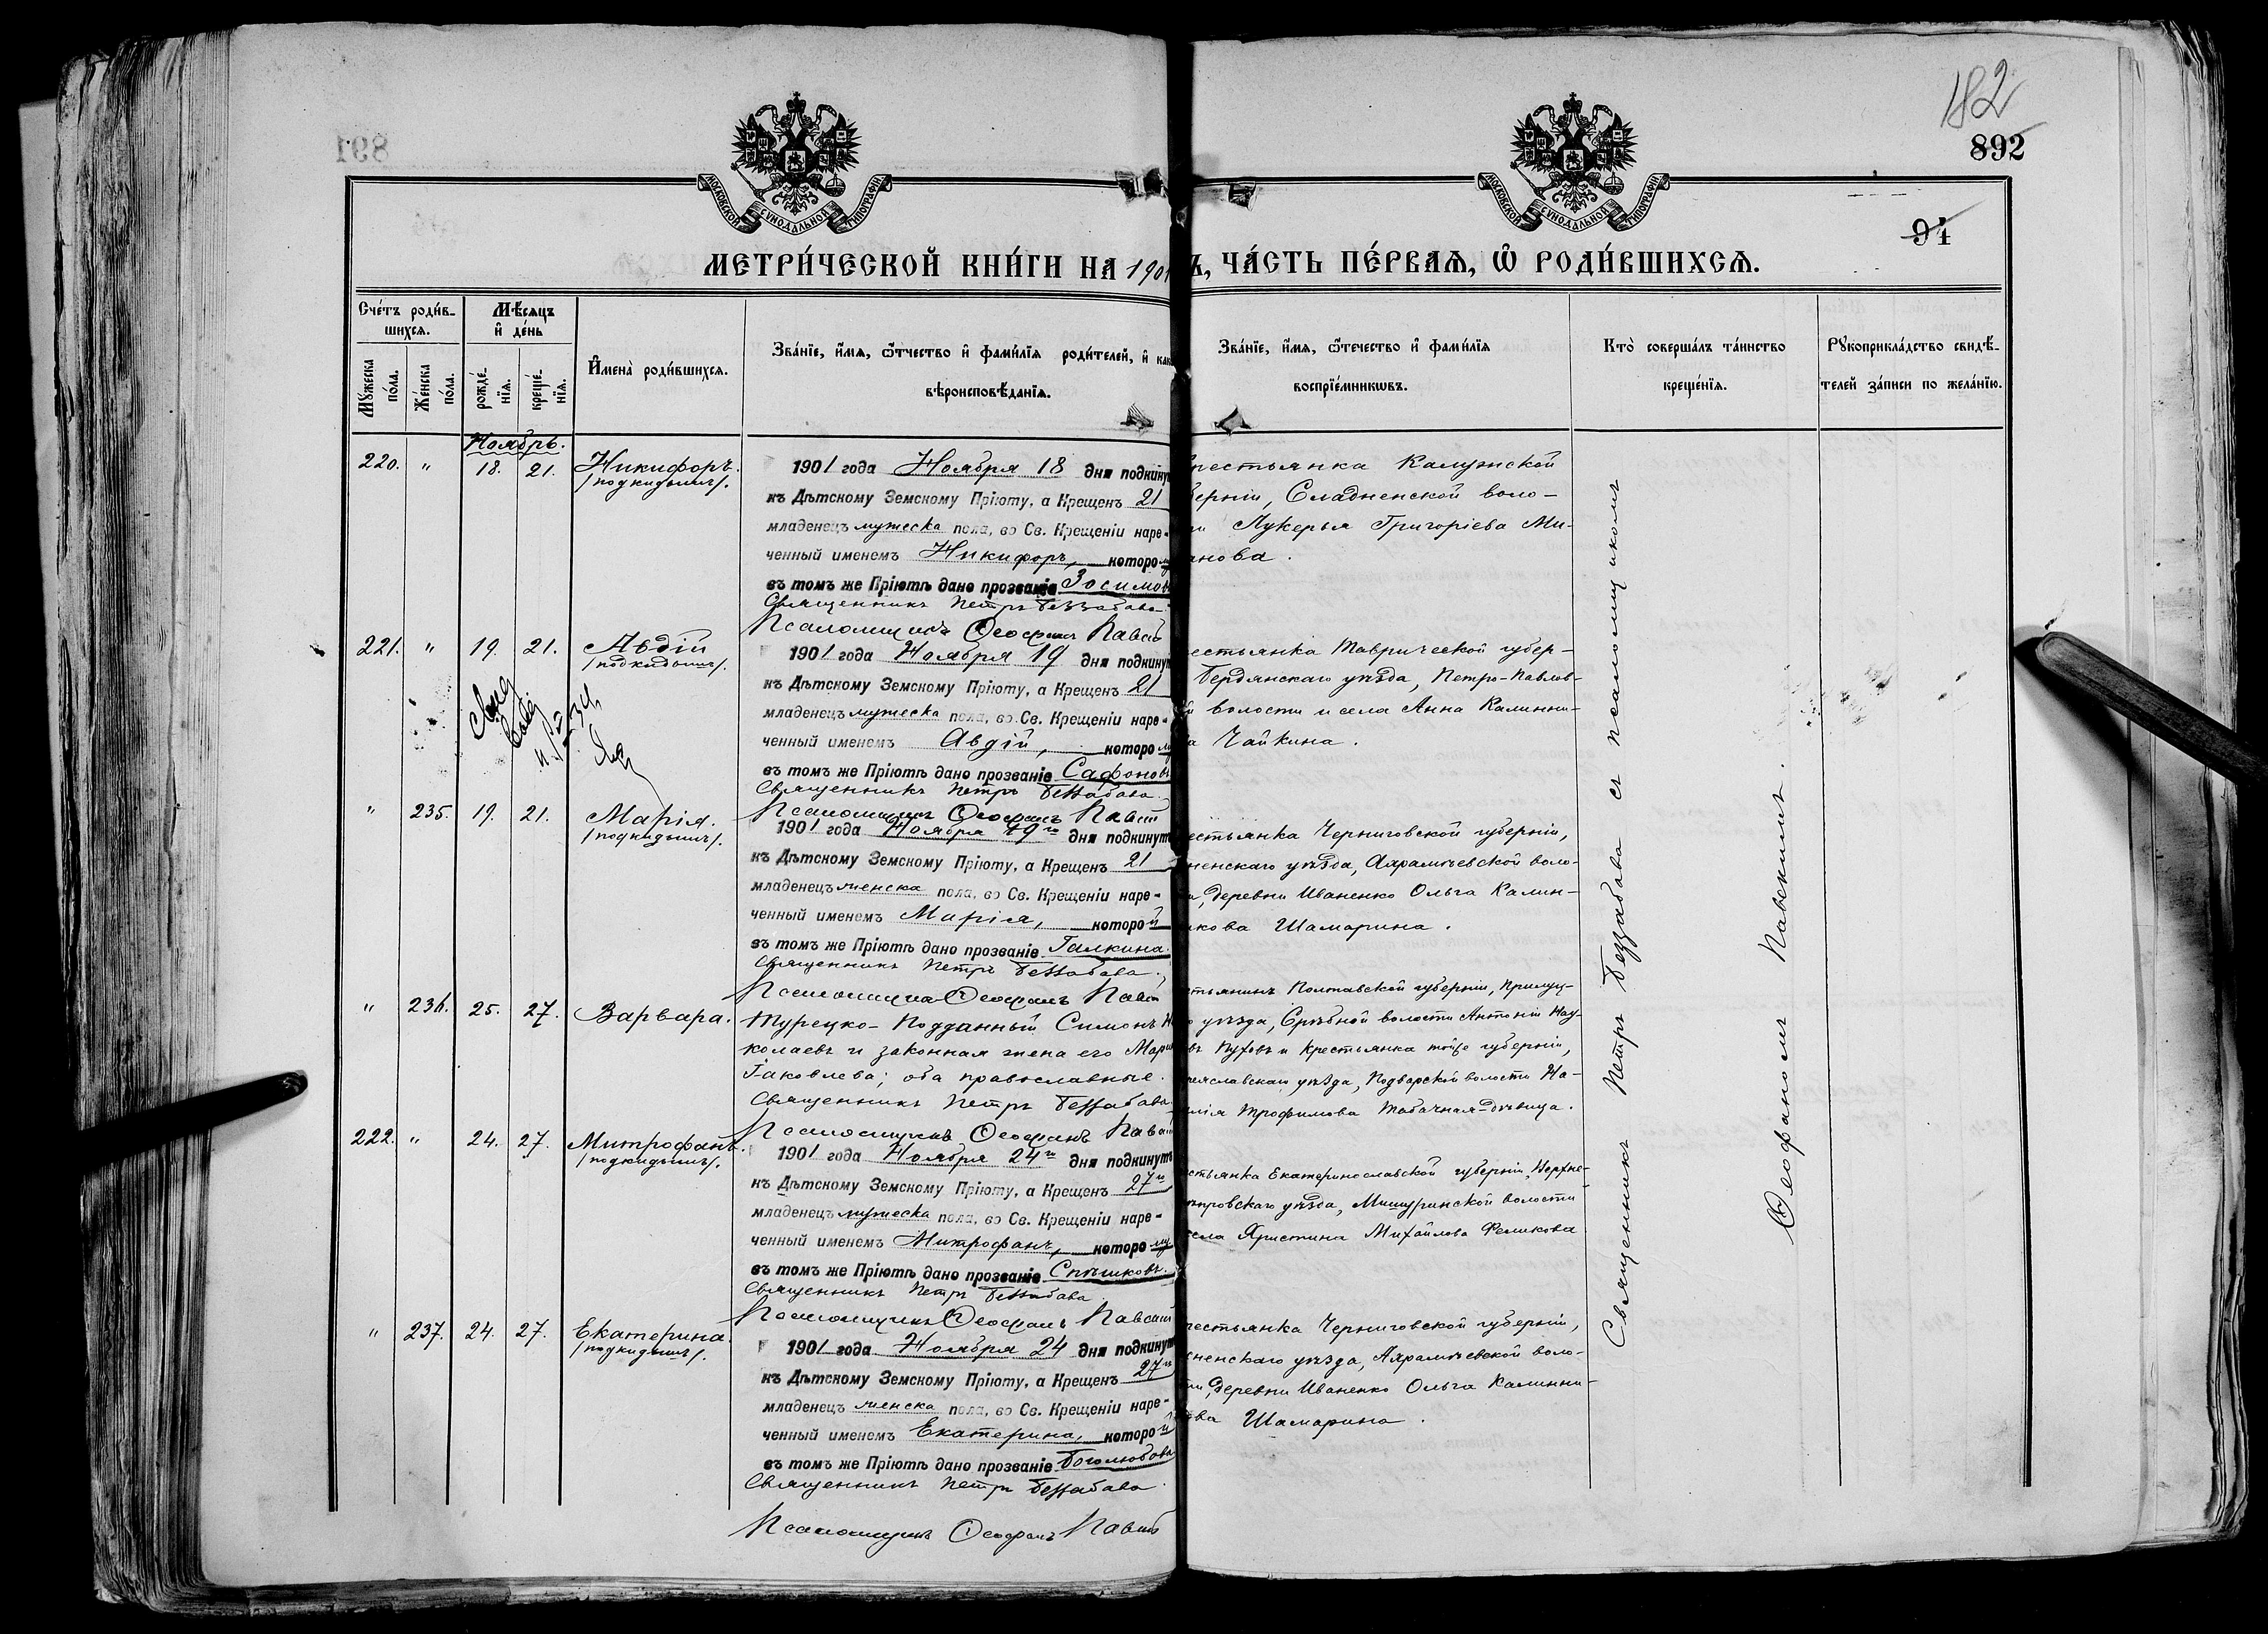 182
892
94
МОСКОВСКОЙ СѴНОДАЛЬНОЙ ТИПОГРАФІИ
МОСКОВСКОЙ СѴНОДАЛЬНОЙ ТИПОГРАФІИ
МЕТРИ́ЧЕСКОЙ КНИ́ГИ НА 1901
Ъ, ЧА́СТЬ ПЕ́РВАѦ, Ѡ҆ РОДИ́ВШИХСѦ.
Сче́тъ роди́в-
шихсѧ.
Мꙋжеска по́ла.
Же́нска по́ла.
Мѣ́сѧцъ
и҆ де́нь
рожде́-нїѧ.
креще́-нїѧ.
И҆мена̀ роди́вшихсѧ.
Зва́нїе, и҆́мѧ, ѻ҆́тчество и҆ фами́лїѧ роди́телей, и҆ как
вѣроисповѣ́данїѧ.
Зва́нїе, и҆́мѧ, ѻ҆́течество и҆ фами́лїѧ
воспрїе́мникѡвъ.
Кто̀ соверша́лъ та́инство
креще́нїѧ.
Рꙋкоприкла́дство свидѣ́-
телей за́писи по жела́нїю.
Ноябрь.
220. " 18. 21. Никифоръ.
/подкидышъ/.
1901 года Ноября 18 дня подкину
къ Дѣтскому Земскому Пріюту, а Крещенъ 21
младенецъ мужеска пола, во Св. Крещеніи наре-
ченный именемъ Никифоръ, которо му
въ томъ же Пріютѣ дано прозваніе Зосимов
Священникъ Петръ Беззабава
Псаломщикъ Ѳеофанъ Павс
рестьянка Калужской
берніи, Сладненской воло-
ти Лукерья Григоріева Ми-
анова.
221. " 19. 21. Авдій
/подкидышъ/.
1901 года Ноября 19 дня подкину
къ Дѣтскому Земскому Пріюту, а Крещенъ 21
младенецъ мужеска пола, во Св. Крещеніи наре-
ченный именемъ Авдій, которо му
въ томъ же Пріютѣ дано прозваніе Сафоновъ
Священникъ Петръ Беззабава.
Псаломщикъ Ѳеофанъ Павс
естьянка Таврической губер-
Бердянскаго уѣзда, Петро-Павлов-
й волости и села Анна Калинни-
а Чайкина.
" 235. 19. 21. Марія.
/подкидышъ/.
1901 года Ноября 19го дня подкинут
къ Дѣтскому Земскому Пріюту, а Крещенъ 21
младенецъ женска пола, во Св. Крещеніи наре-
ченный именемъ Марія, которо й
въ томъ же Пріютѣ дано прозваніе Галкина.
Священникъ Петръ Беззабава.
Псаломщикъ Ѳеофанъ Павс
естьянка Черниговской губерніи,
ненскаго уѣзда, Ахрамѣевской воло-
и, деревни Иваненко Ольга Калин-
икова Шамарина.
" 236. 25. 27. Варвара.
Турецко-Подданный Симонъ Н
колаевъ и законная жена его Мар
Іаковлева; оба православные.
Священникъ Петръ Беззабава
Псаломщикъ Ѳеофанъ Павс
стьянинъ Полтавской губерніи, Прилуц-
о уѣзда, Срѣбной волости Антоній Нау-
въ Пуховъ и Крестьянка тойже губерніи,
реяславскаго уѣзда, Подварской волости На-
алія Трофимова Табачная-дѣвица.
222. " 24. 27. Митрофанъ.
/подкидышъ/.
1901 года Ноября 24го дня подкинутъ
къ Дѣтскому Земскому Пріюту, а Крещенъ 27го
младенецъ мужеска пола, во Св. Крещеніи наре-
ченный именемъ Митрофанъ, которо му
въ томъ же Пріютѣ дано прозваніе Спѣшковъ.
Священникъ Петръ Беззабава
Псаломщикъ Ѳеофанъ Павс
стьянка Екатеринославской губерніи, Верхне-
нѣпровскаго уѣзда, Мишуринской волости
села Христина Михайлова Феликова
" 237. 24. 27. Екатерина.
/подкидышъ/.
1901 года Ноября 24 дня подкину
къ Дѣтскому Земскому Пріюту, а Крещенъ 27го
младенецъ женска пола, во Св. Крещеніи наре-
ченный именемъ Екатерина, которо й
въ томъ же Пріютѣ дано прозваніе Боголюбова
Священникъ Петръ Беззабава.
Псаломщикъ Ѳеофанъ Павс
рестьянка Черниговской губерніи,
сненскаго уѣзда, Ахрамѣевской воло-
ти, деревни Иваненко Ольга Калинни-
ова Шамарина.
Священникъ Петръ Беззабава съ псаломщикомъ
Ѳеофаномъ Павскимъ.